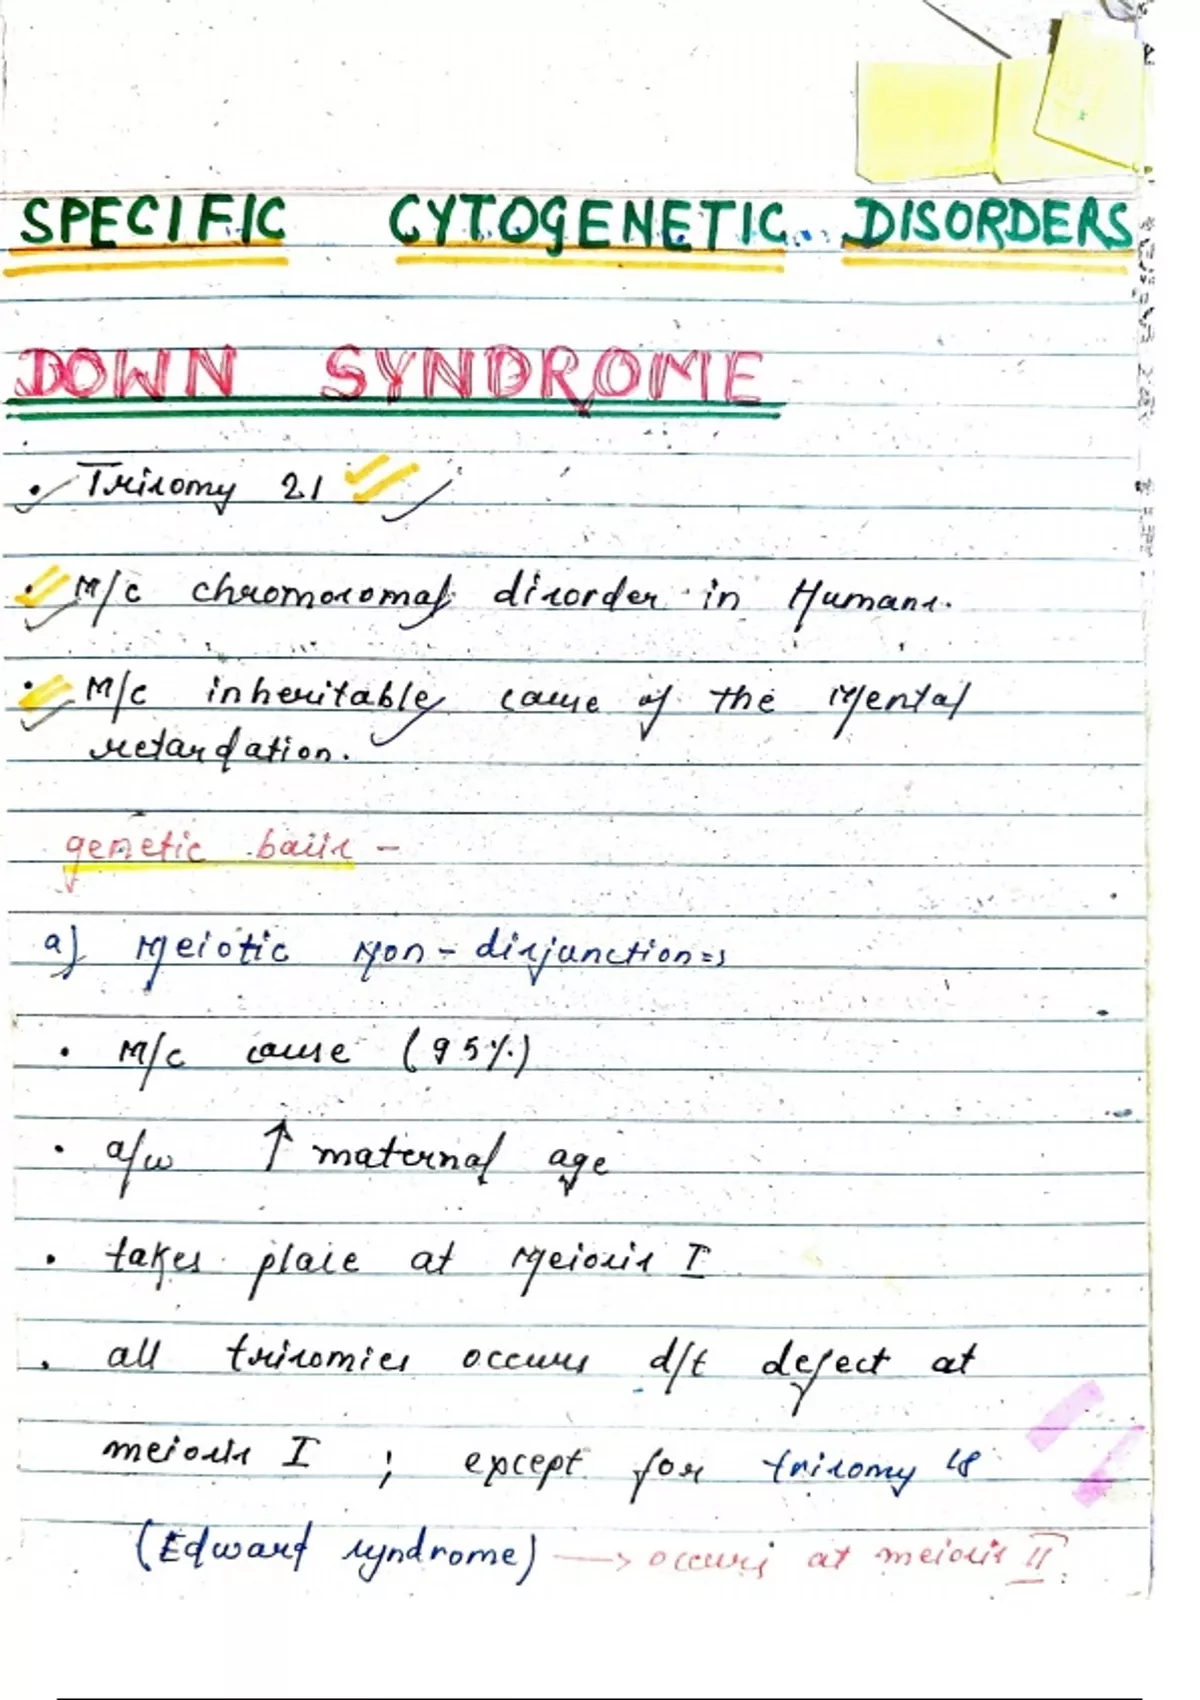 SPECIFIC CYTOGENETIC DISORDERS
DOWN SYNDROME
• Trisomy 21
• M/c chromosomal disorder in Humans.
• M/c inheritable cause of the Mental
retardation.
genetic basis -
a) Meiotic Non-disjunction=>
• M/c cause (95%)
• a/w ↑ maternal age
• takes place at Meiosis I
• all trisomies occurs d/t defect at
meiosis I ; except for trisomy 18
(Edward syndrome) → occurs at meiosis II.